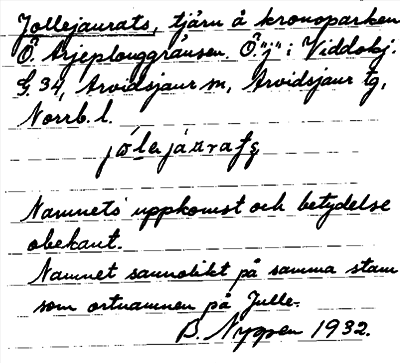 Jollejaurats, tjärn å kronoparken
Ö. Arjeplouggränsen. Ö "j" i Viddokj.
G. 34, Arvidsjaur sn, Arvidsjaur tg,
Norrb. l.
Namnets uppkomst och betydelse
obekant.
Namnet sannolikt på samma stam
som ortnamnen på Julle-
B. Nyppen 1932.